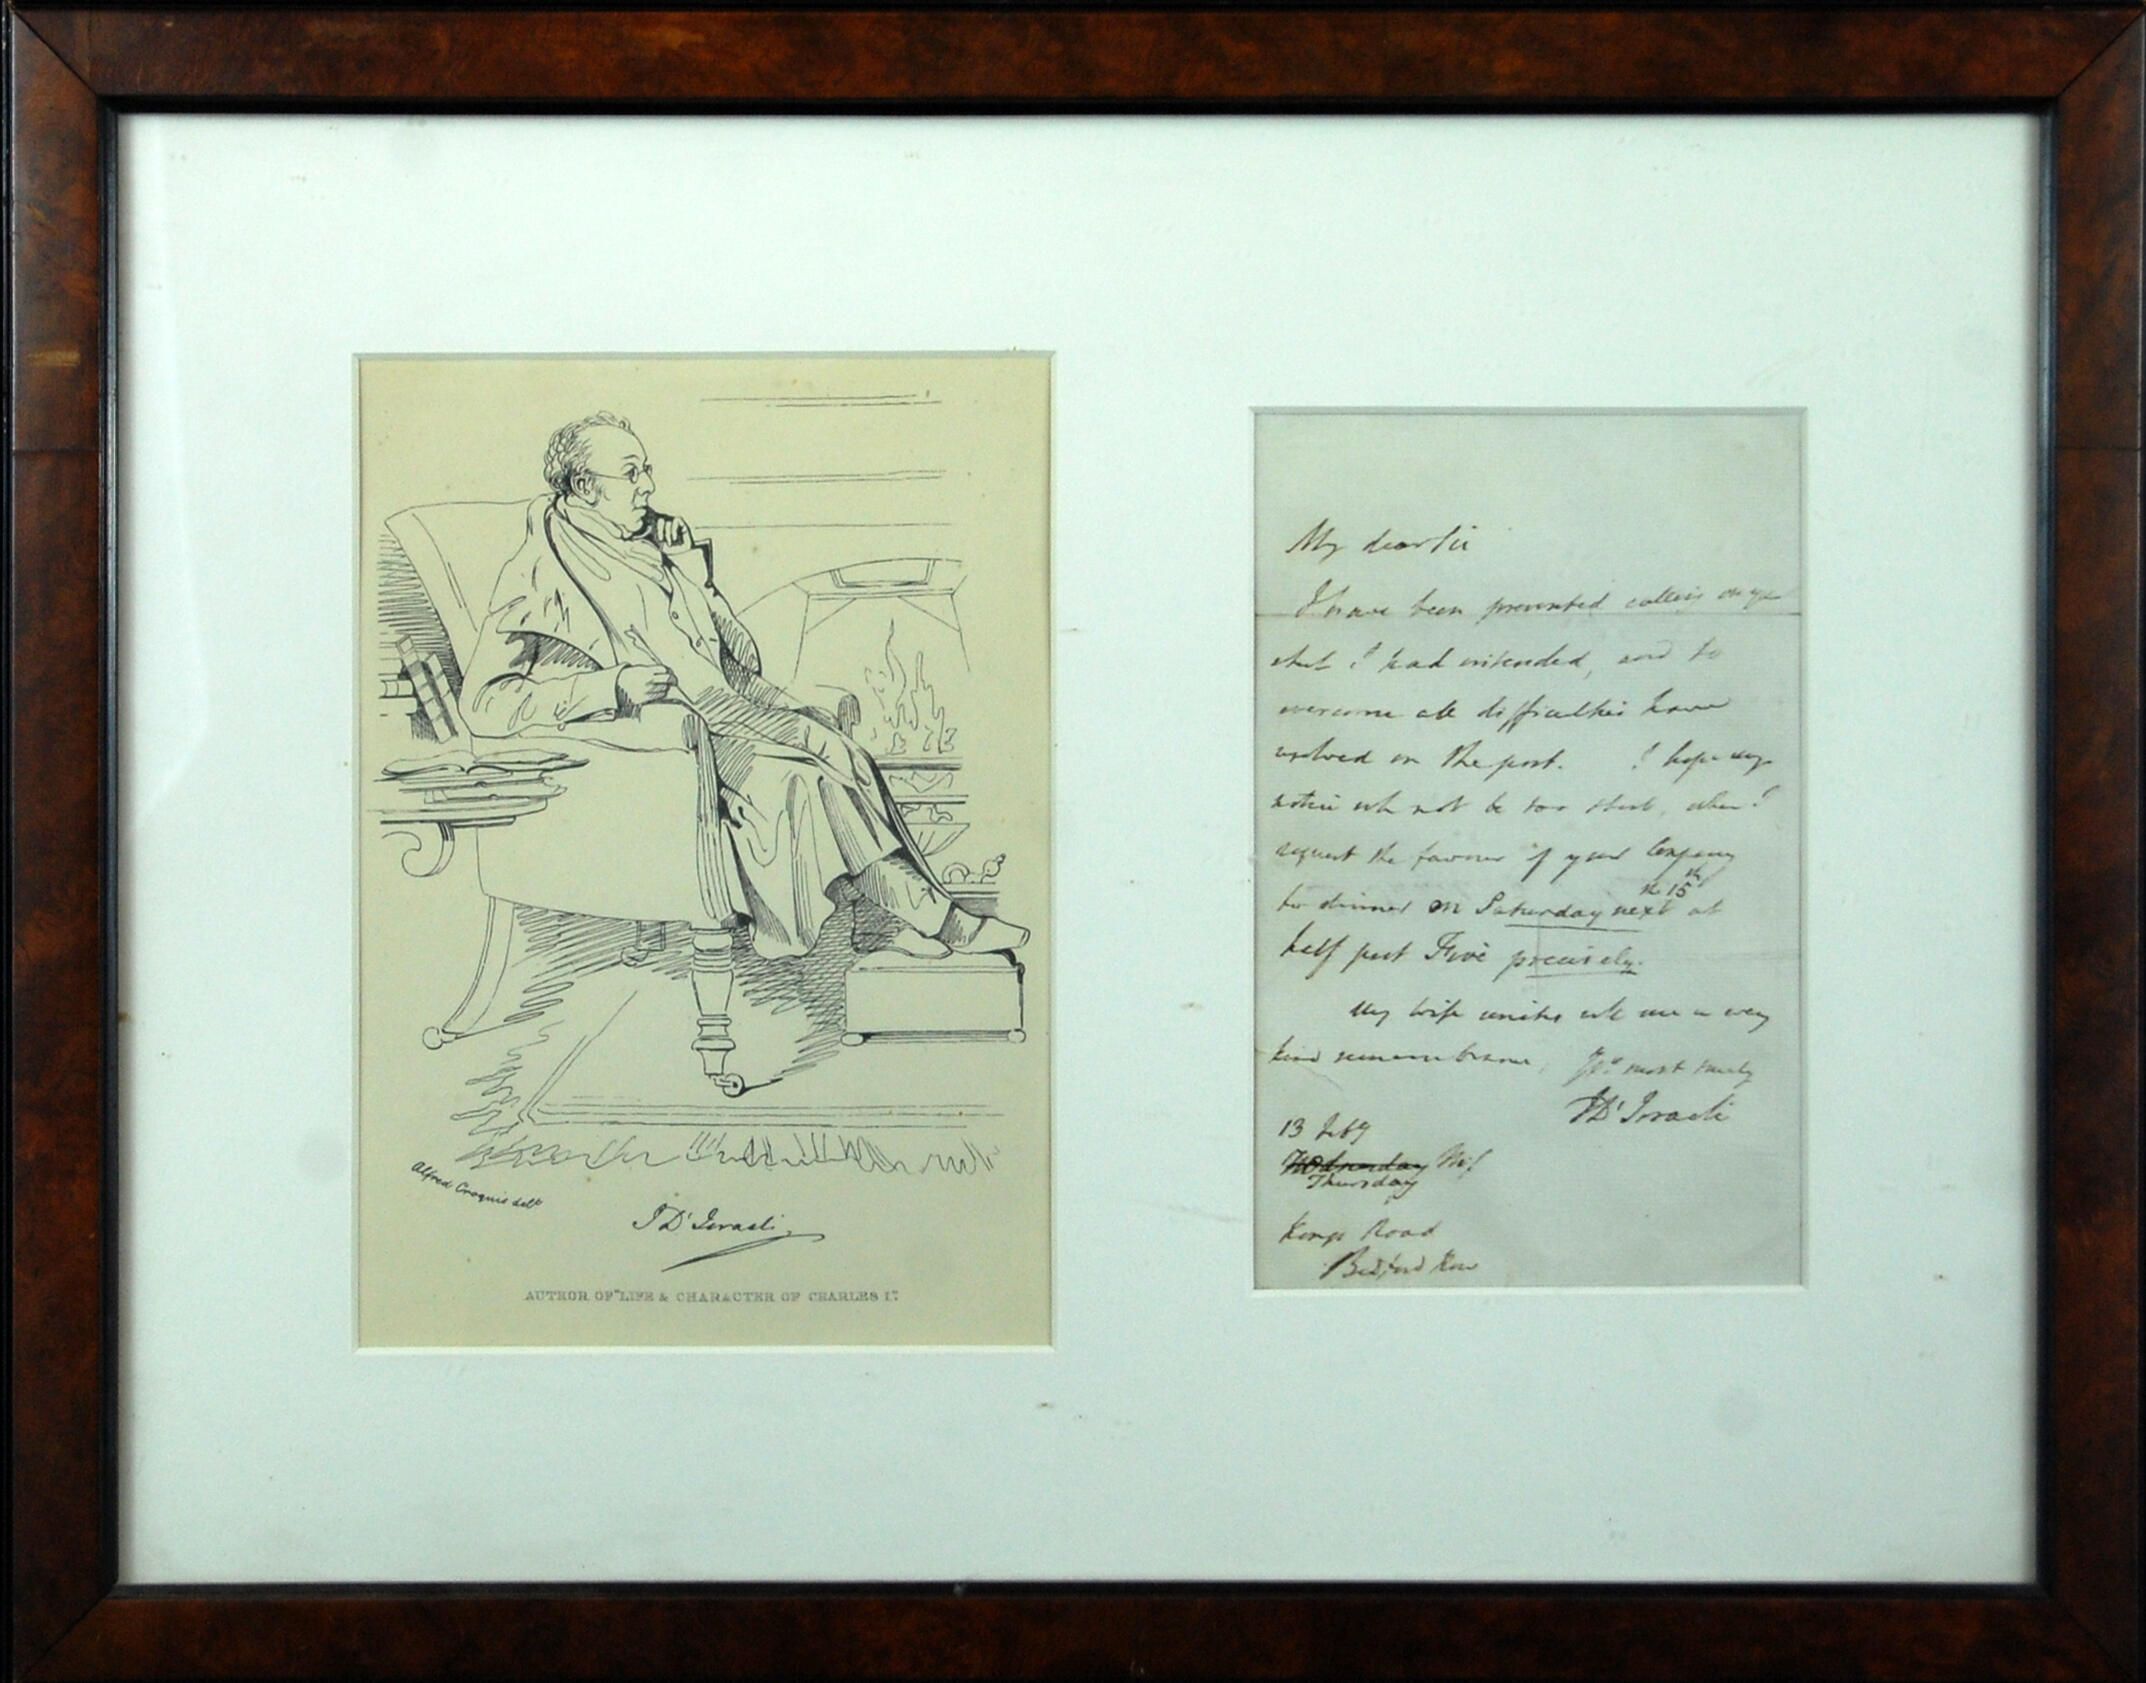 Alfred Croquis delt
I D'Israeli
AUTHOR OF "LIFE & CHARACTER OF CHARLES I."
My dear Sir
I have been prevented calling on you
what I had intended, and to
overcome all difficulties have
resolved on the post. I hope my
notice will not be too short, when I
request the favour of your Company
to dinner on Saturday next the 15th at
half past Five precisely.
My wife unites with me in very
kind remembrance, Yrs most truly
I D'Israeli
13 Feby
Wednesday
Thursday
Kings Road
Bedford Row